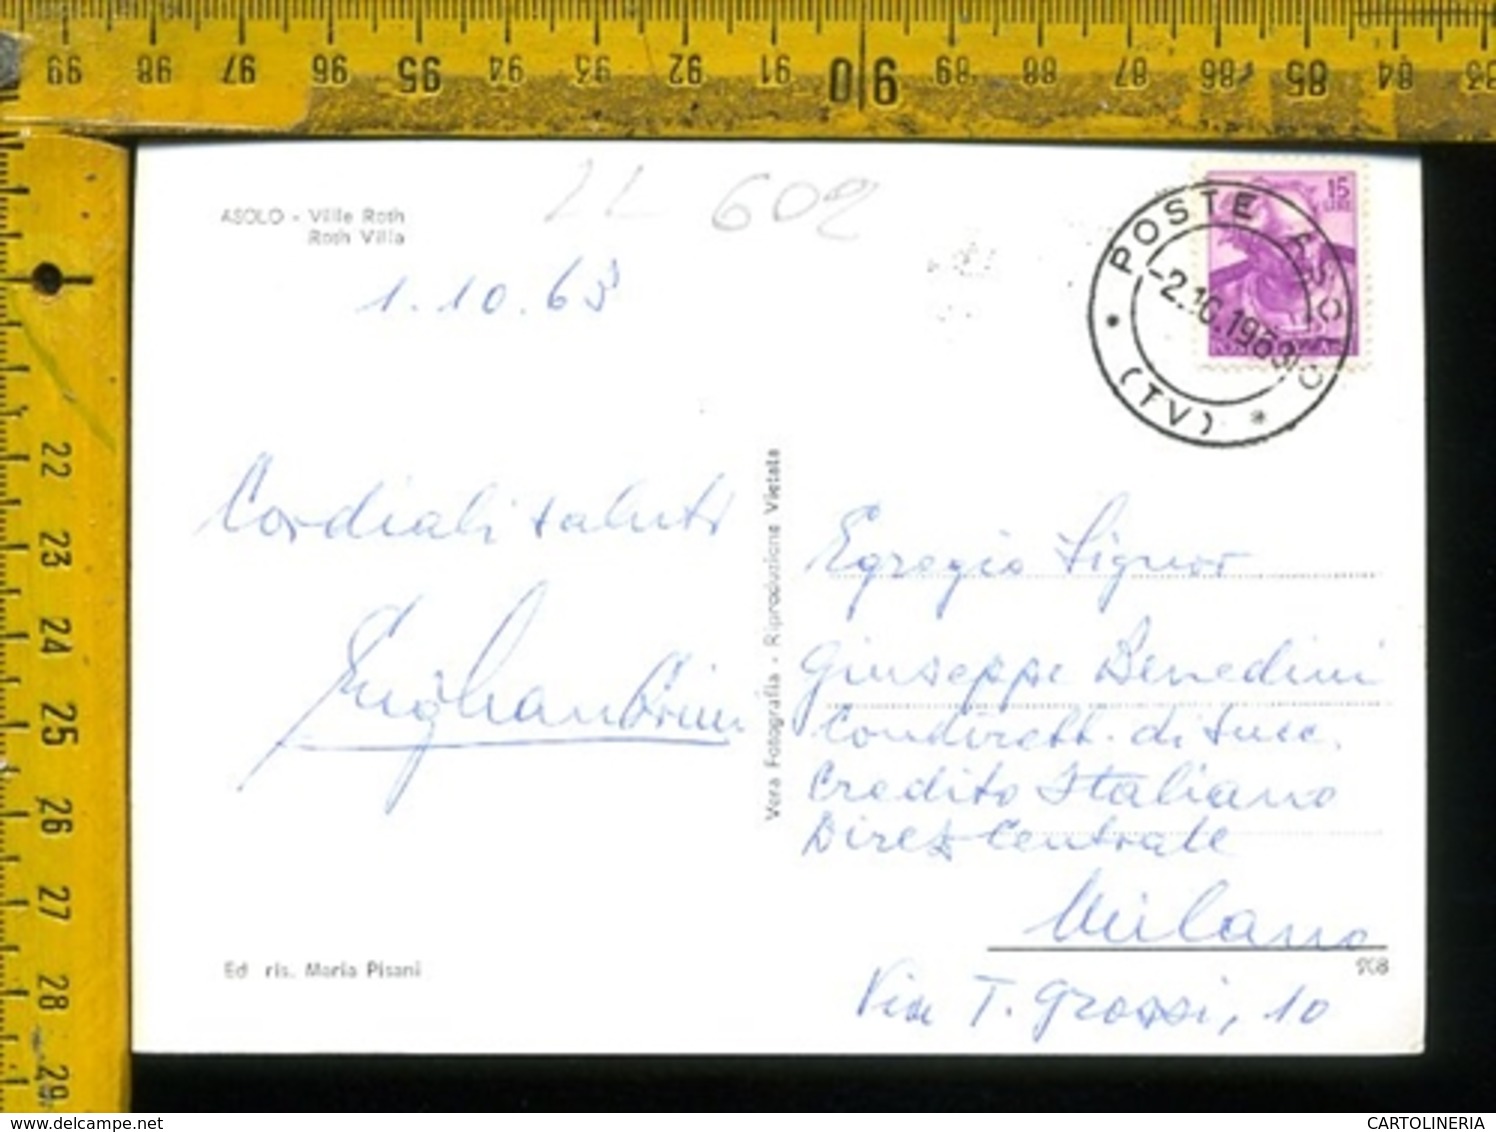 99 98 97 96 95 94 93 92 91 90 89 88 87 86 85 84 83
22
23
24
25
26
27
28
29
ASOLO - Ville Roth
Roth Villa
LL 602
1.10.63
15
LIRE
POSTE ASOLO
-2.10.1963
(TV)
Cordiali saluti
Vera Fotografia - Riproduzione Vietata
Egregio Signor
Giuseppe Benedini
Condirett. di succ.
Credito Italiano
Direz Centrale
Milano
Via T. Grossi, 10
908
Ed ris. Maria Pisani
delcampe.net
CARTOLINERIA